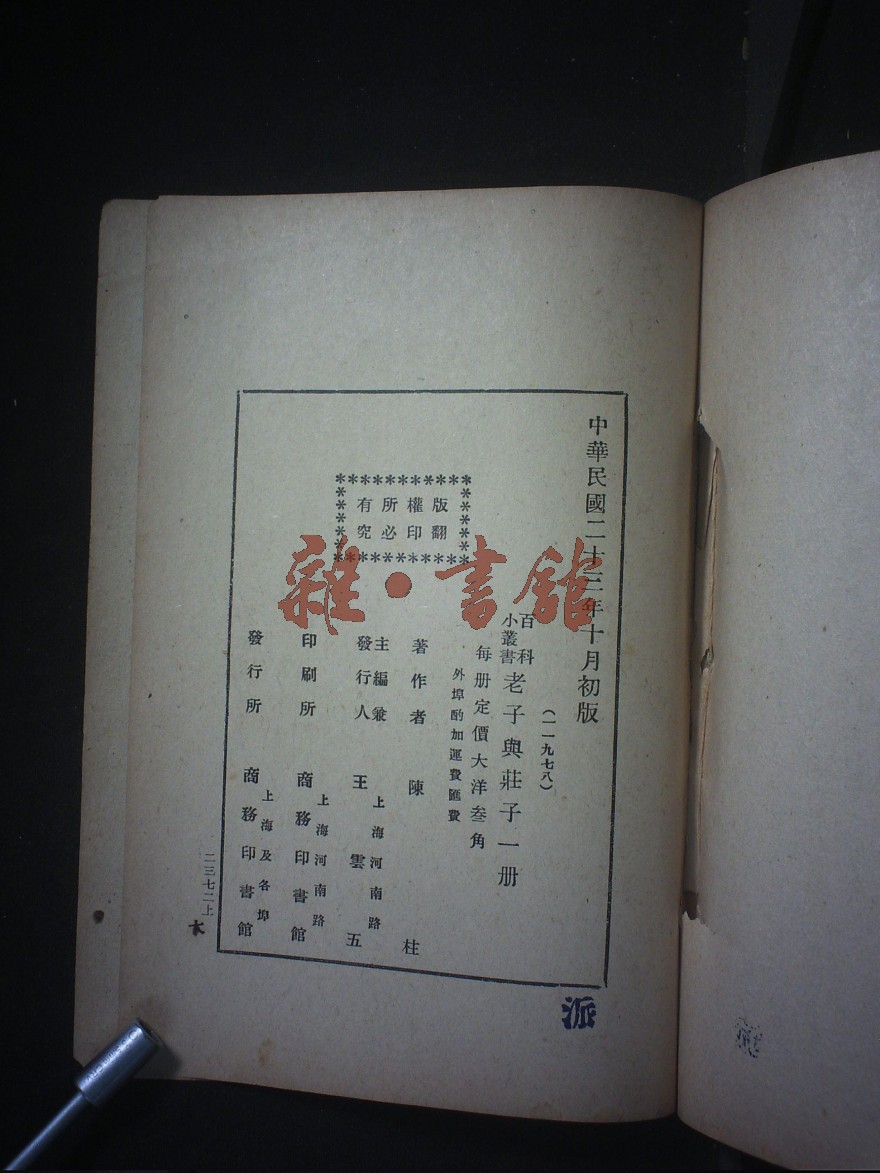 中華民國二十三年十月初版
(一一九七八)
百科
小叢書
老子與莊子一册
每册定價大洋叁角
外埠酌加運費匯費
版權所有
翻印必究
著作者 陳柱
主編兼
發行人
王雲五
上海河南路
印刷所
商務印書館
上海河南路
發行所
商務印書館
上海及各埠
二三七二上
派
雜·書館